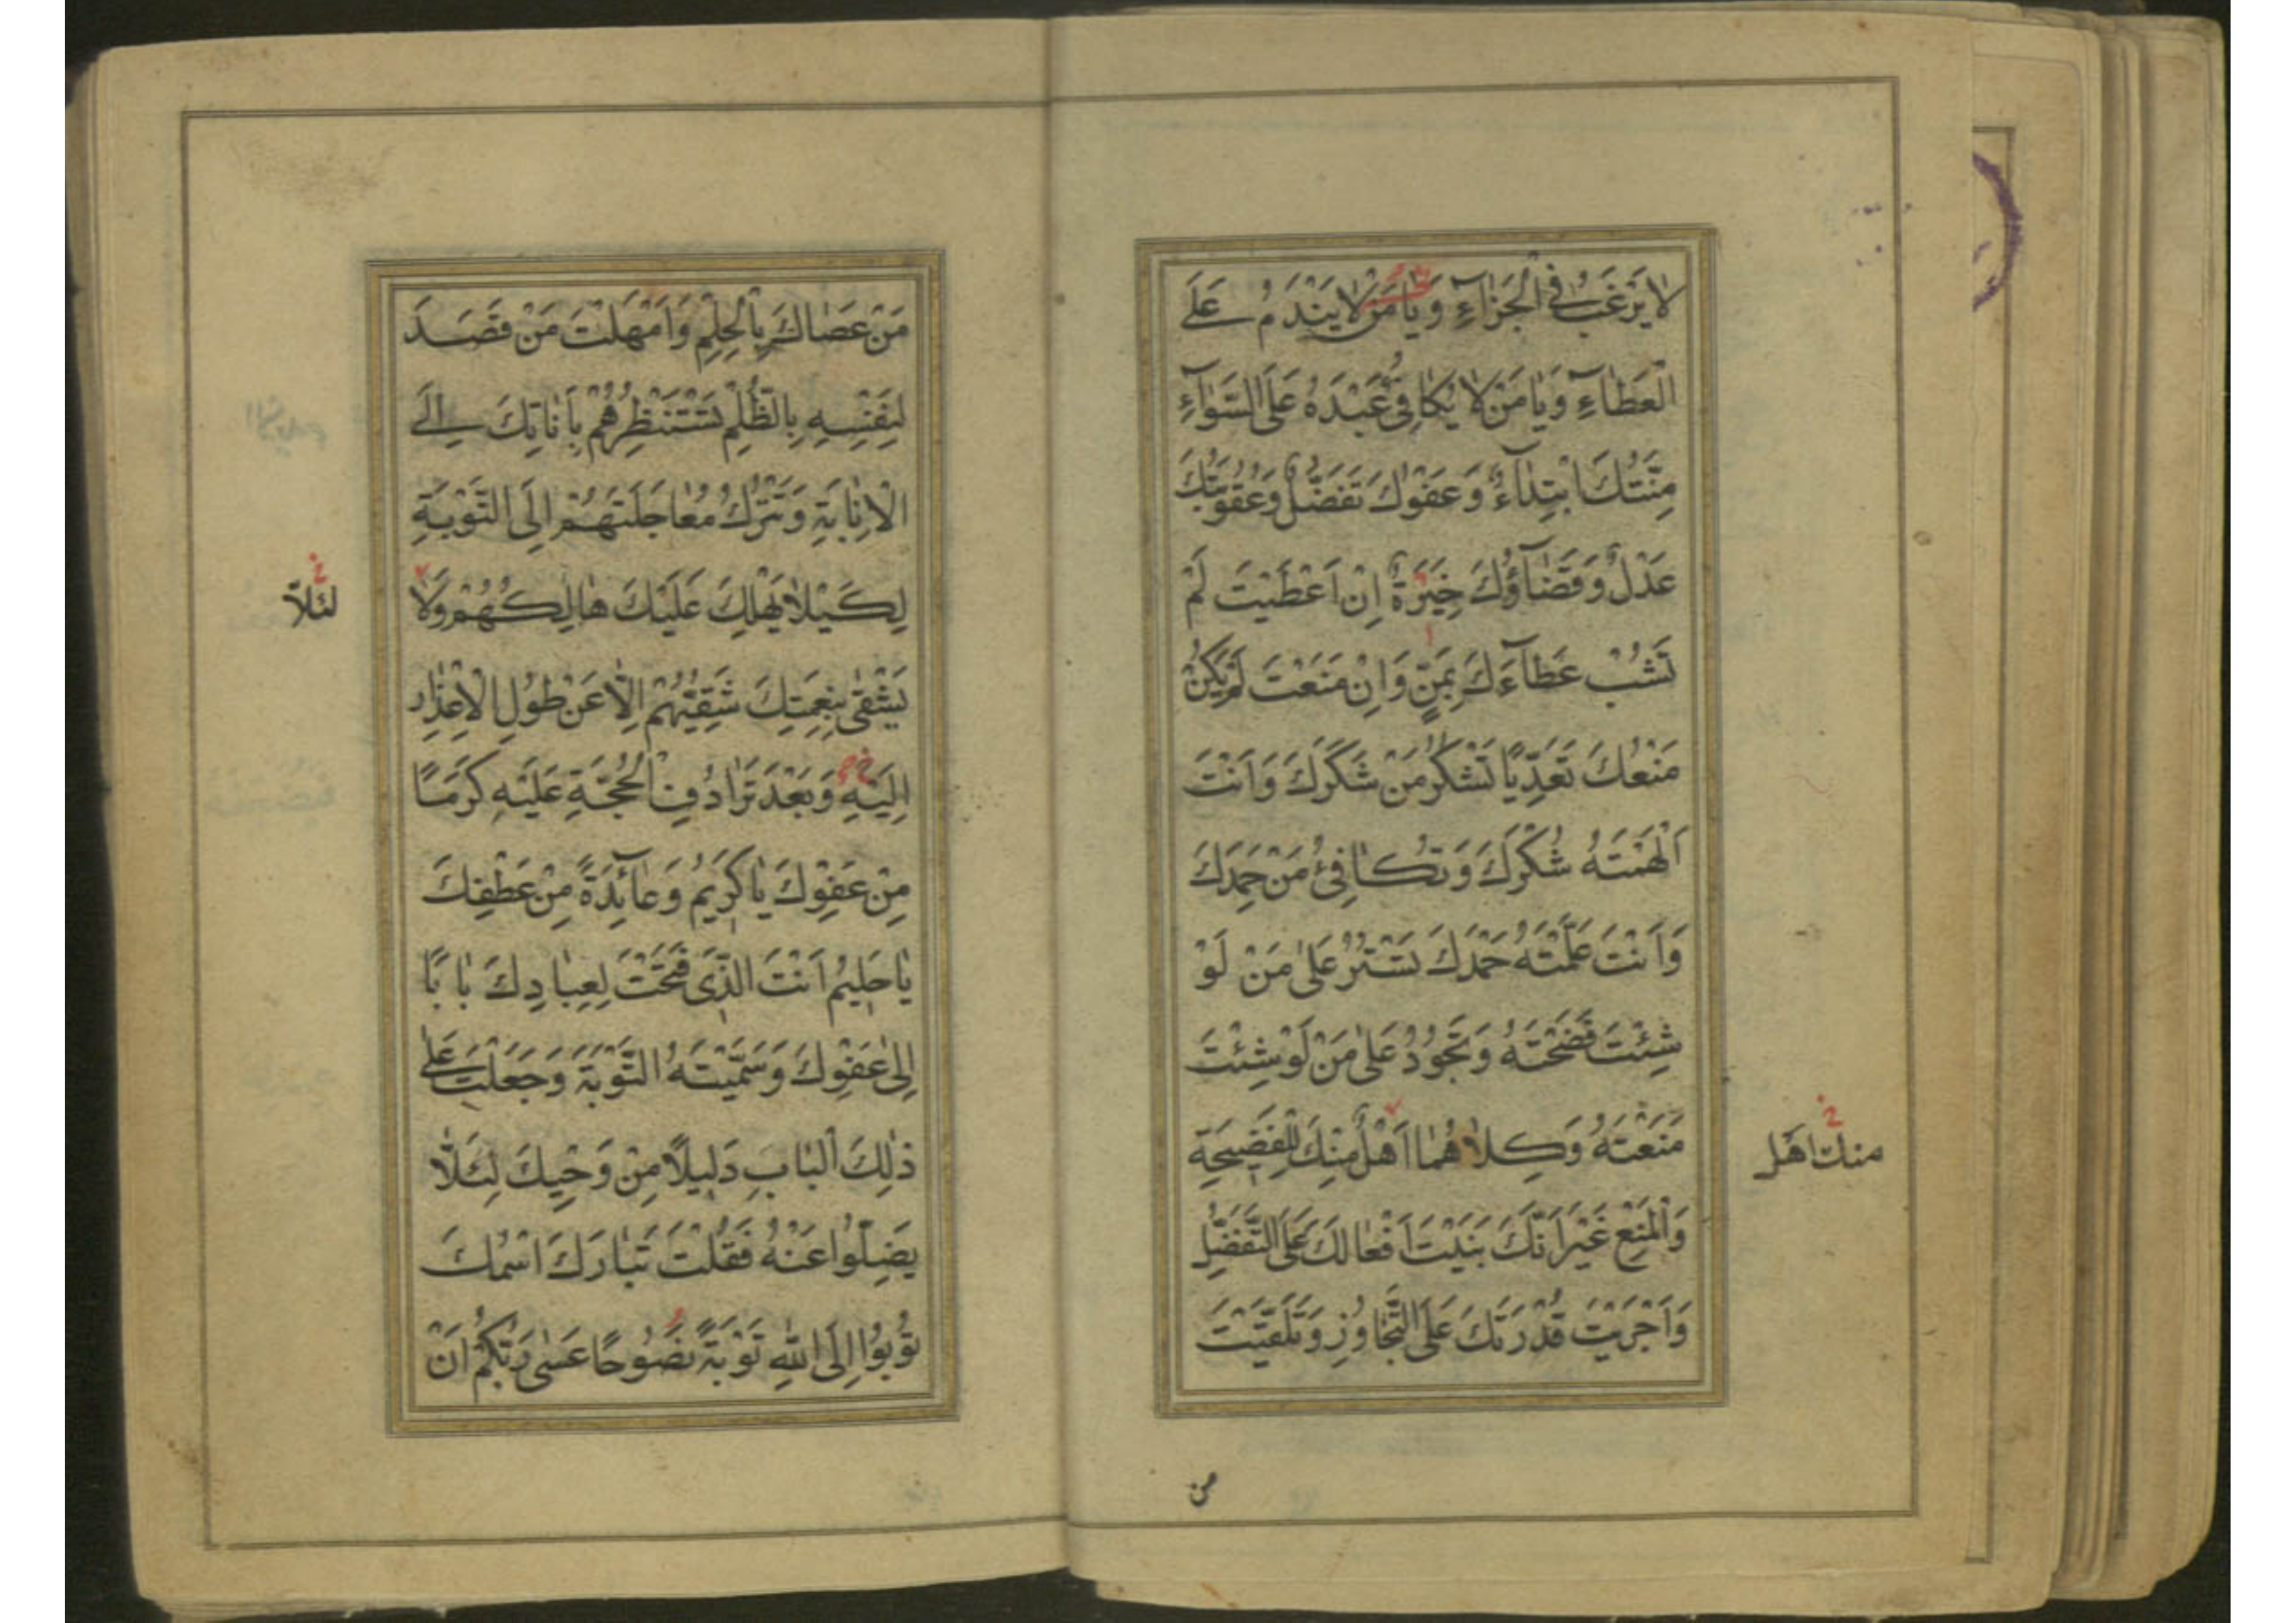 لَا يَرْغَبُ فِي الْجَزَآءِ وَيَا مَنْ لَا يَنْدَمُ عَلَى
الْعَطَآءِ وَيَا مَنْ لَا يُكَافِئُ عَبْدَهُ عَلَى السَّوَآءِ
مِنَّتُكَ ابْتِدَآءٌ وَعَفْوُكَ تَفَضُّلٌ وَعُقُوبَتُكَ
عَدْلٌ وَقَضَآؤُكَ خِيَرَةٌ اِنْ اَعْطَيْتَ لَمْ
تَشُبْ عَطَآءَكَ بِمَنٍّ وَاِنْ مَنَعْتَ لَمْ يَكُنْ
مَنْعُكَ تَعَدِّيًا تَشْكُرُ مَنْ شَكَرَكَ وَاَنْتَ
اَلْهَمْتَهُ شُكْرَكَ وَتُكَافِئُ مَنْ حَمِدَكَ
وَاَنْتَ عَلَّمْتَهُ حَمْدَكَ تَسْتُرُ عَلَى مَنْ لَوْ
شِئْتَ فَضَحْتَهُ وَتَجُودُ عَلَى مَنْ لَوْ شِئْتَ
مَنَعْتَهُ وَكِلَاهُمَا اَهْلٌ مِنْكَ لِلْفَضِيحَةِ
خ
منك اَهل
وَالْمَنْعِ غَيْرَ اَنَّكَ بَنَيْتَ اَفْعَالَكَ عَلَى التَّفَضُّلِ
وَاَجْرَيْتَ قُدْرَتَكَ عَلَى التَّجَاوُزِ وَتَلَقَّيْتَ
من
مَنْ عَصَاكَ بِالْحِلْمِ وَاَمْهَلْتَ مَنْ قَصَدَ
لِنَفْسِهِ بِالظُّلْمِ تَسْتَنْظِرُهُمْ بِاَنَاتِكَ اِلَى
الْاِنَابَةِ وَتَتْرُكُ مُعَاجَلَتَهُمْ اِلَى التَّوْبَةِ
لِكَيْلَا يَهْلِكَ عَلَيْكَ هَالِكُهُمْ وَلَا
خ
لئلّا
يَشْقَى بِنِعْمَتِكَ شَقِيُّهُمْ اِلَّا عَنْ طُولِ الْاِعْذَارِ
اِلَيْهِ وَبَعْدَ تَرَادُفِ الْحُجَّةِ عَلَيْهِ كَرَمًا
مِنْ عَفْوِكَ يَا كَرِيمُ وَعَآئِدَةً مِنْ عَطْفِكَ
يَا حَلِيمُ اَنْتَ الَّذِي فَتَحْتَ لِعِبَادِكَ بَابًا
اِلَى عَفْوِكَ وَسَمَّيْتَهُ التَّوْبَةَ وَجَعَلْتَ عَلَى
ذٰلِكَ الْبَابِ دَلِيلًا مِنْ وَحْيِكَ لِئَلَّا
يَضِلُّوا عَنْهُ فَقُلْتَ تَبَارَكَ اسْمُكَ
تُوبُوا اِلَى اللّٰهِ تَوْبَةً نَصُوحًا عَسٰى رَبُّكُمْ اَنْ